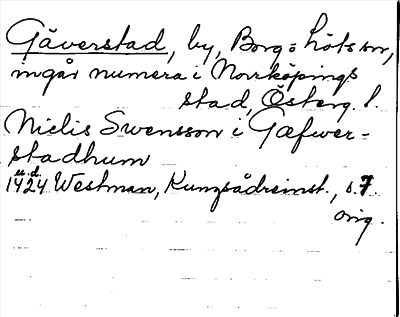 Gäverstad, by, Borgs-Löts sn,
ingår numera i Norrköpings
stad, Österg.l.
Nielis Swensson i Gæfwer-
stadhum
u.d.
1424 Westman, Kungsådreinst., s. 7.
orig.